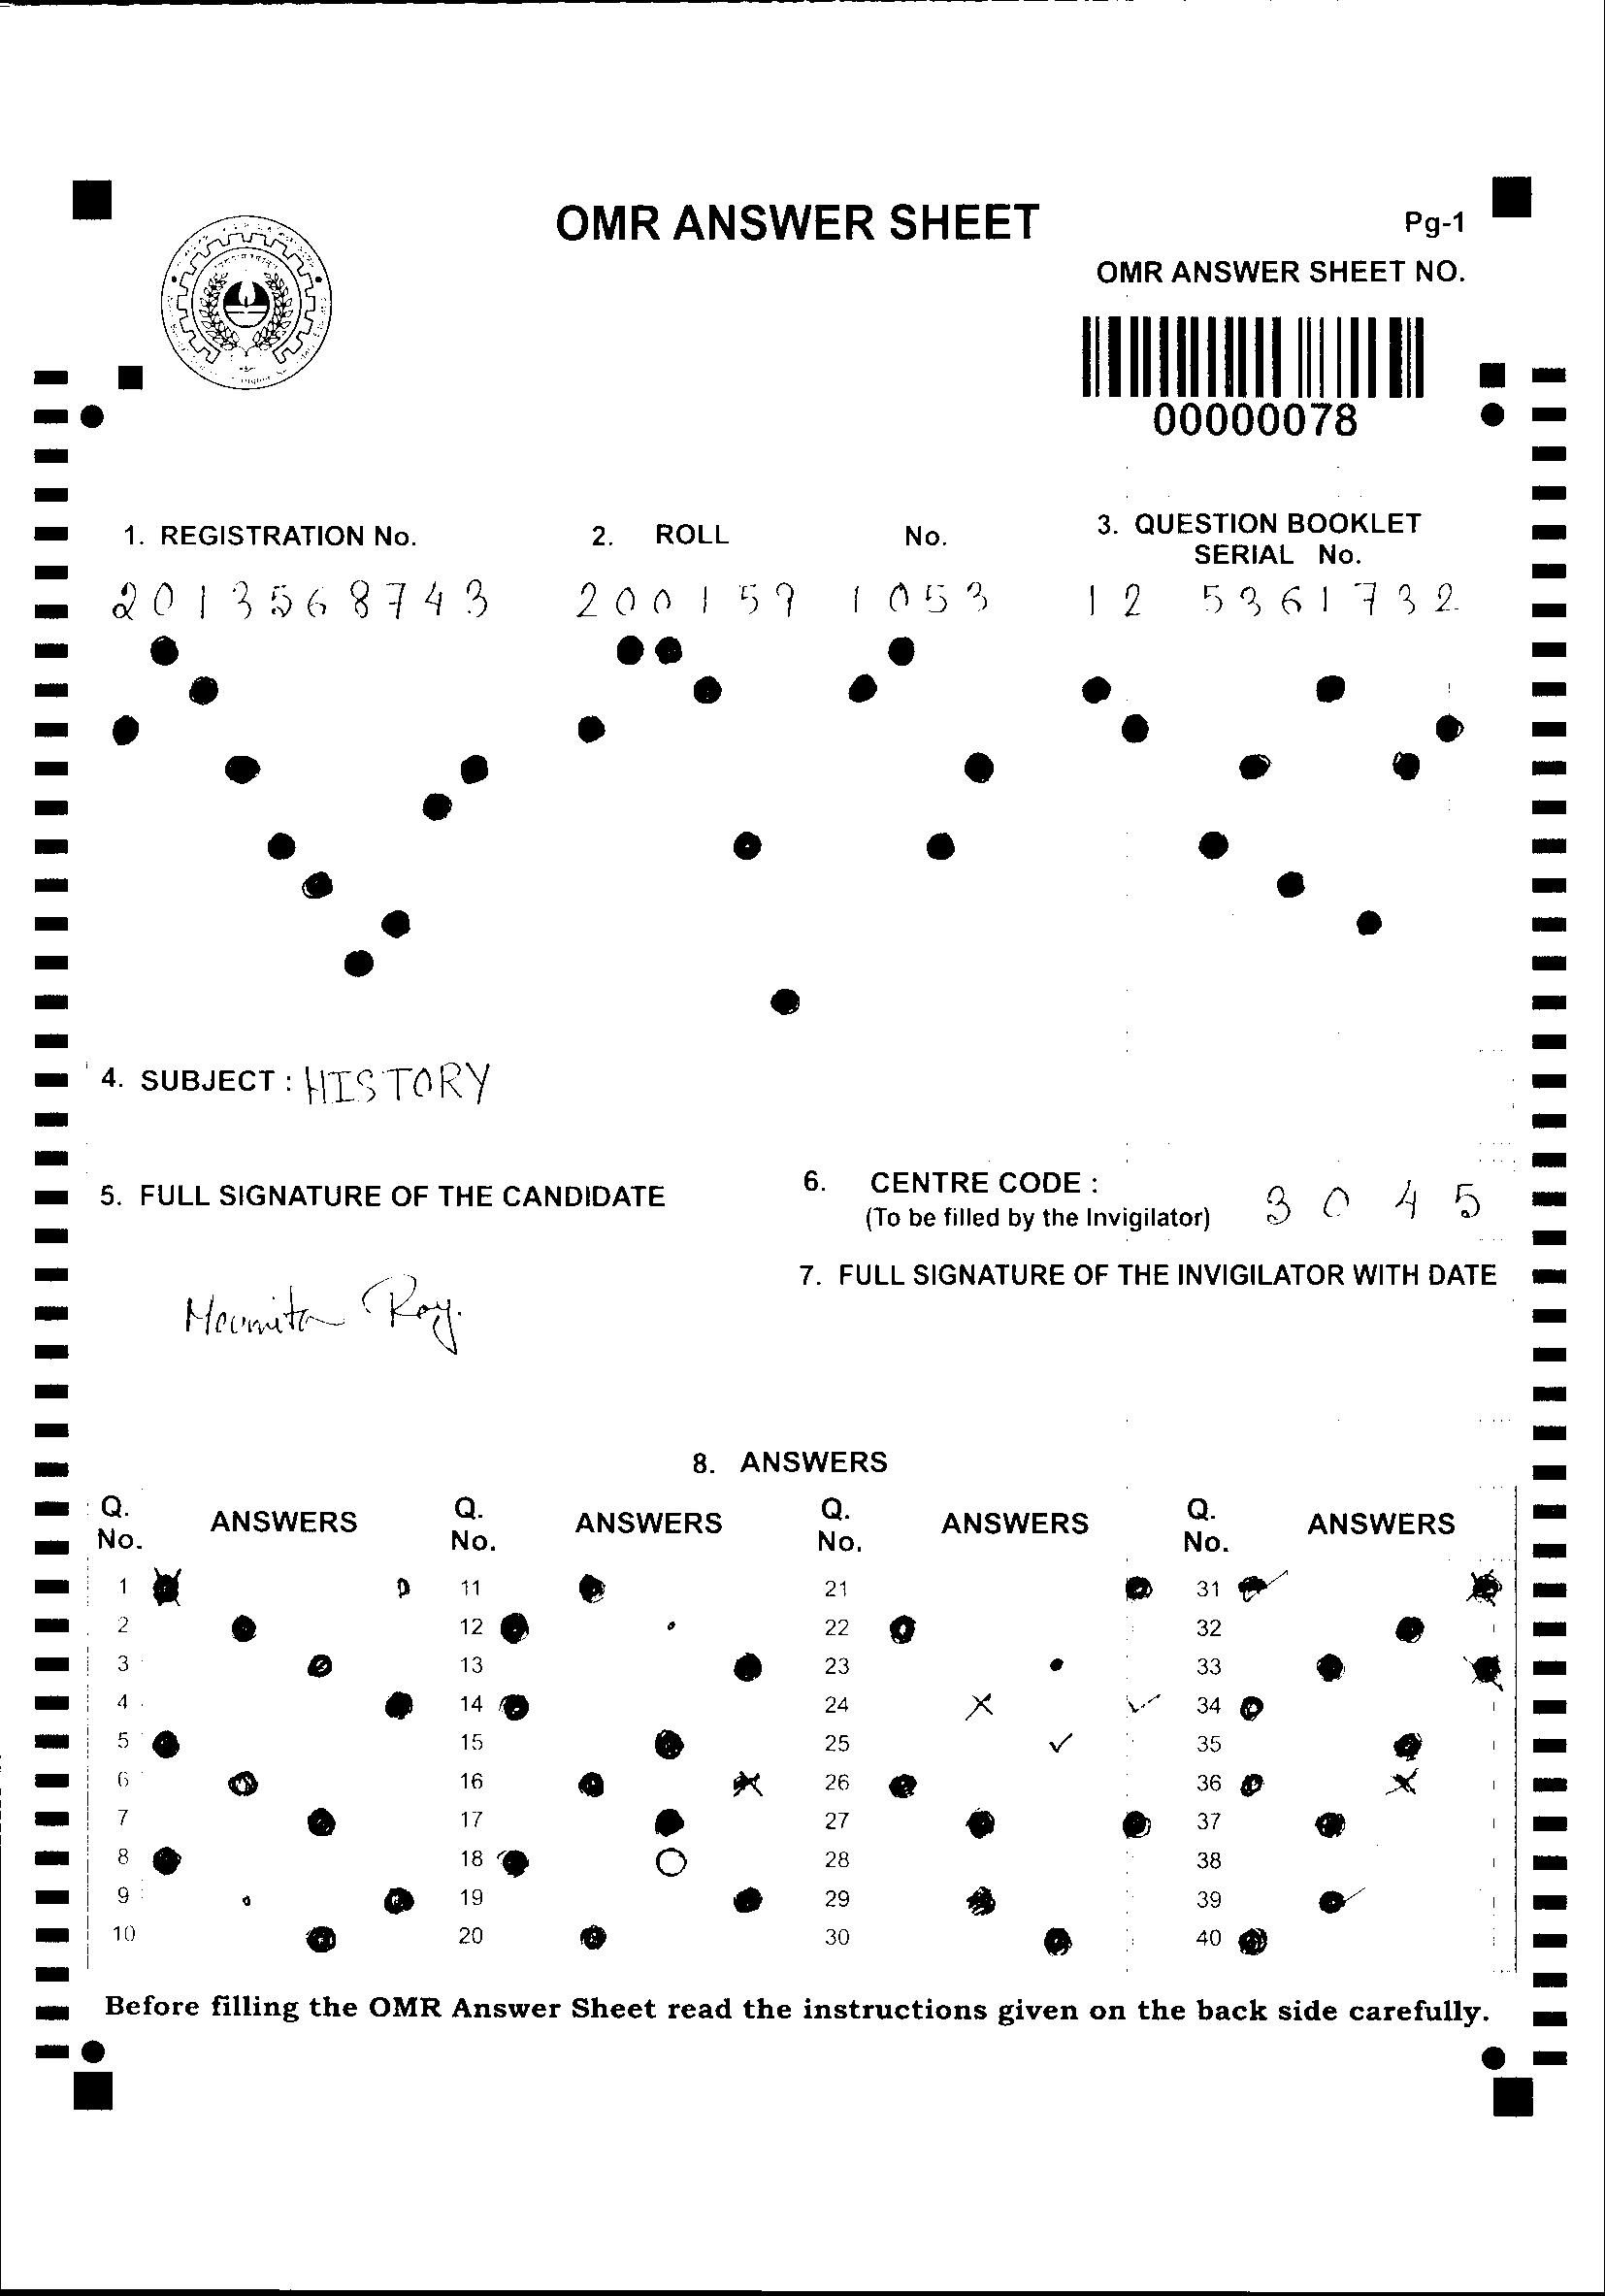 OMR ANSWER SHEET
Pg-1
OMR ANSWER SHEET NO.
00000078
1. REGISTRATION No.
2. ROLL No.
3. QUESTION BOOKLET
SERIAL No.
2013568743
200159 1053
12 5361732
4. SUBJECT : HISTORY
5. FULL SIGNATURE OF THE CANDIDATE
6. CENTRE CODE :
(To be filled by the Invigilator)
3 0 4 5
7. FULL SIGNATURE OF THE INVIGILATOR WITH DATE
Moumita Roy.
8. ANSWERS
Q. No. ANSWERS Q. No. ANSWERS Q. No. ANSWERS Q. No. ANSWERS
1 11 21 31
2 12 22 32
3 13 23 33
4 14 24 34
5 15 25 35
6 16 26 36
7 17 27 37
8 18 28 38
9 19 29 39
10 20 30 40
Before filling the OMR Answer Sheet read the instructions given on the back side carefully.